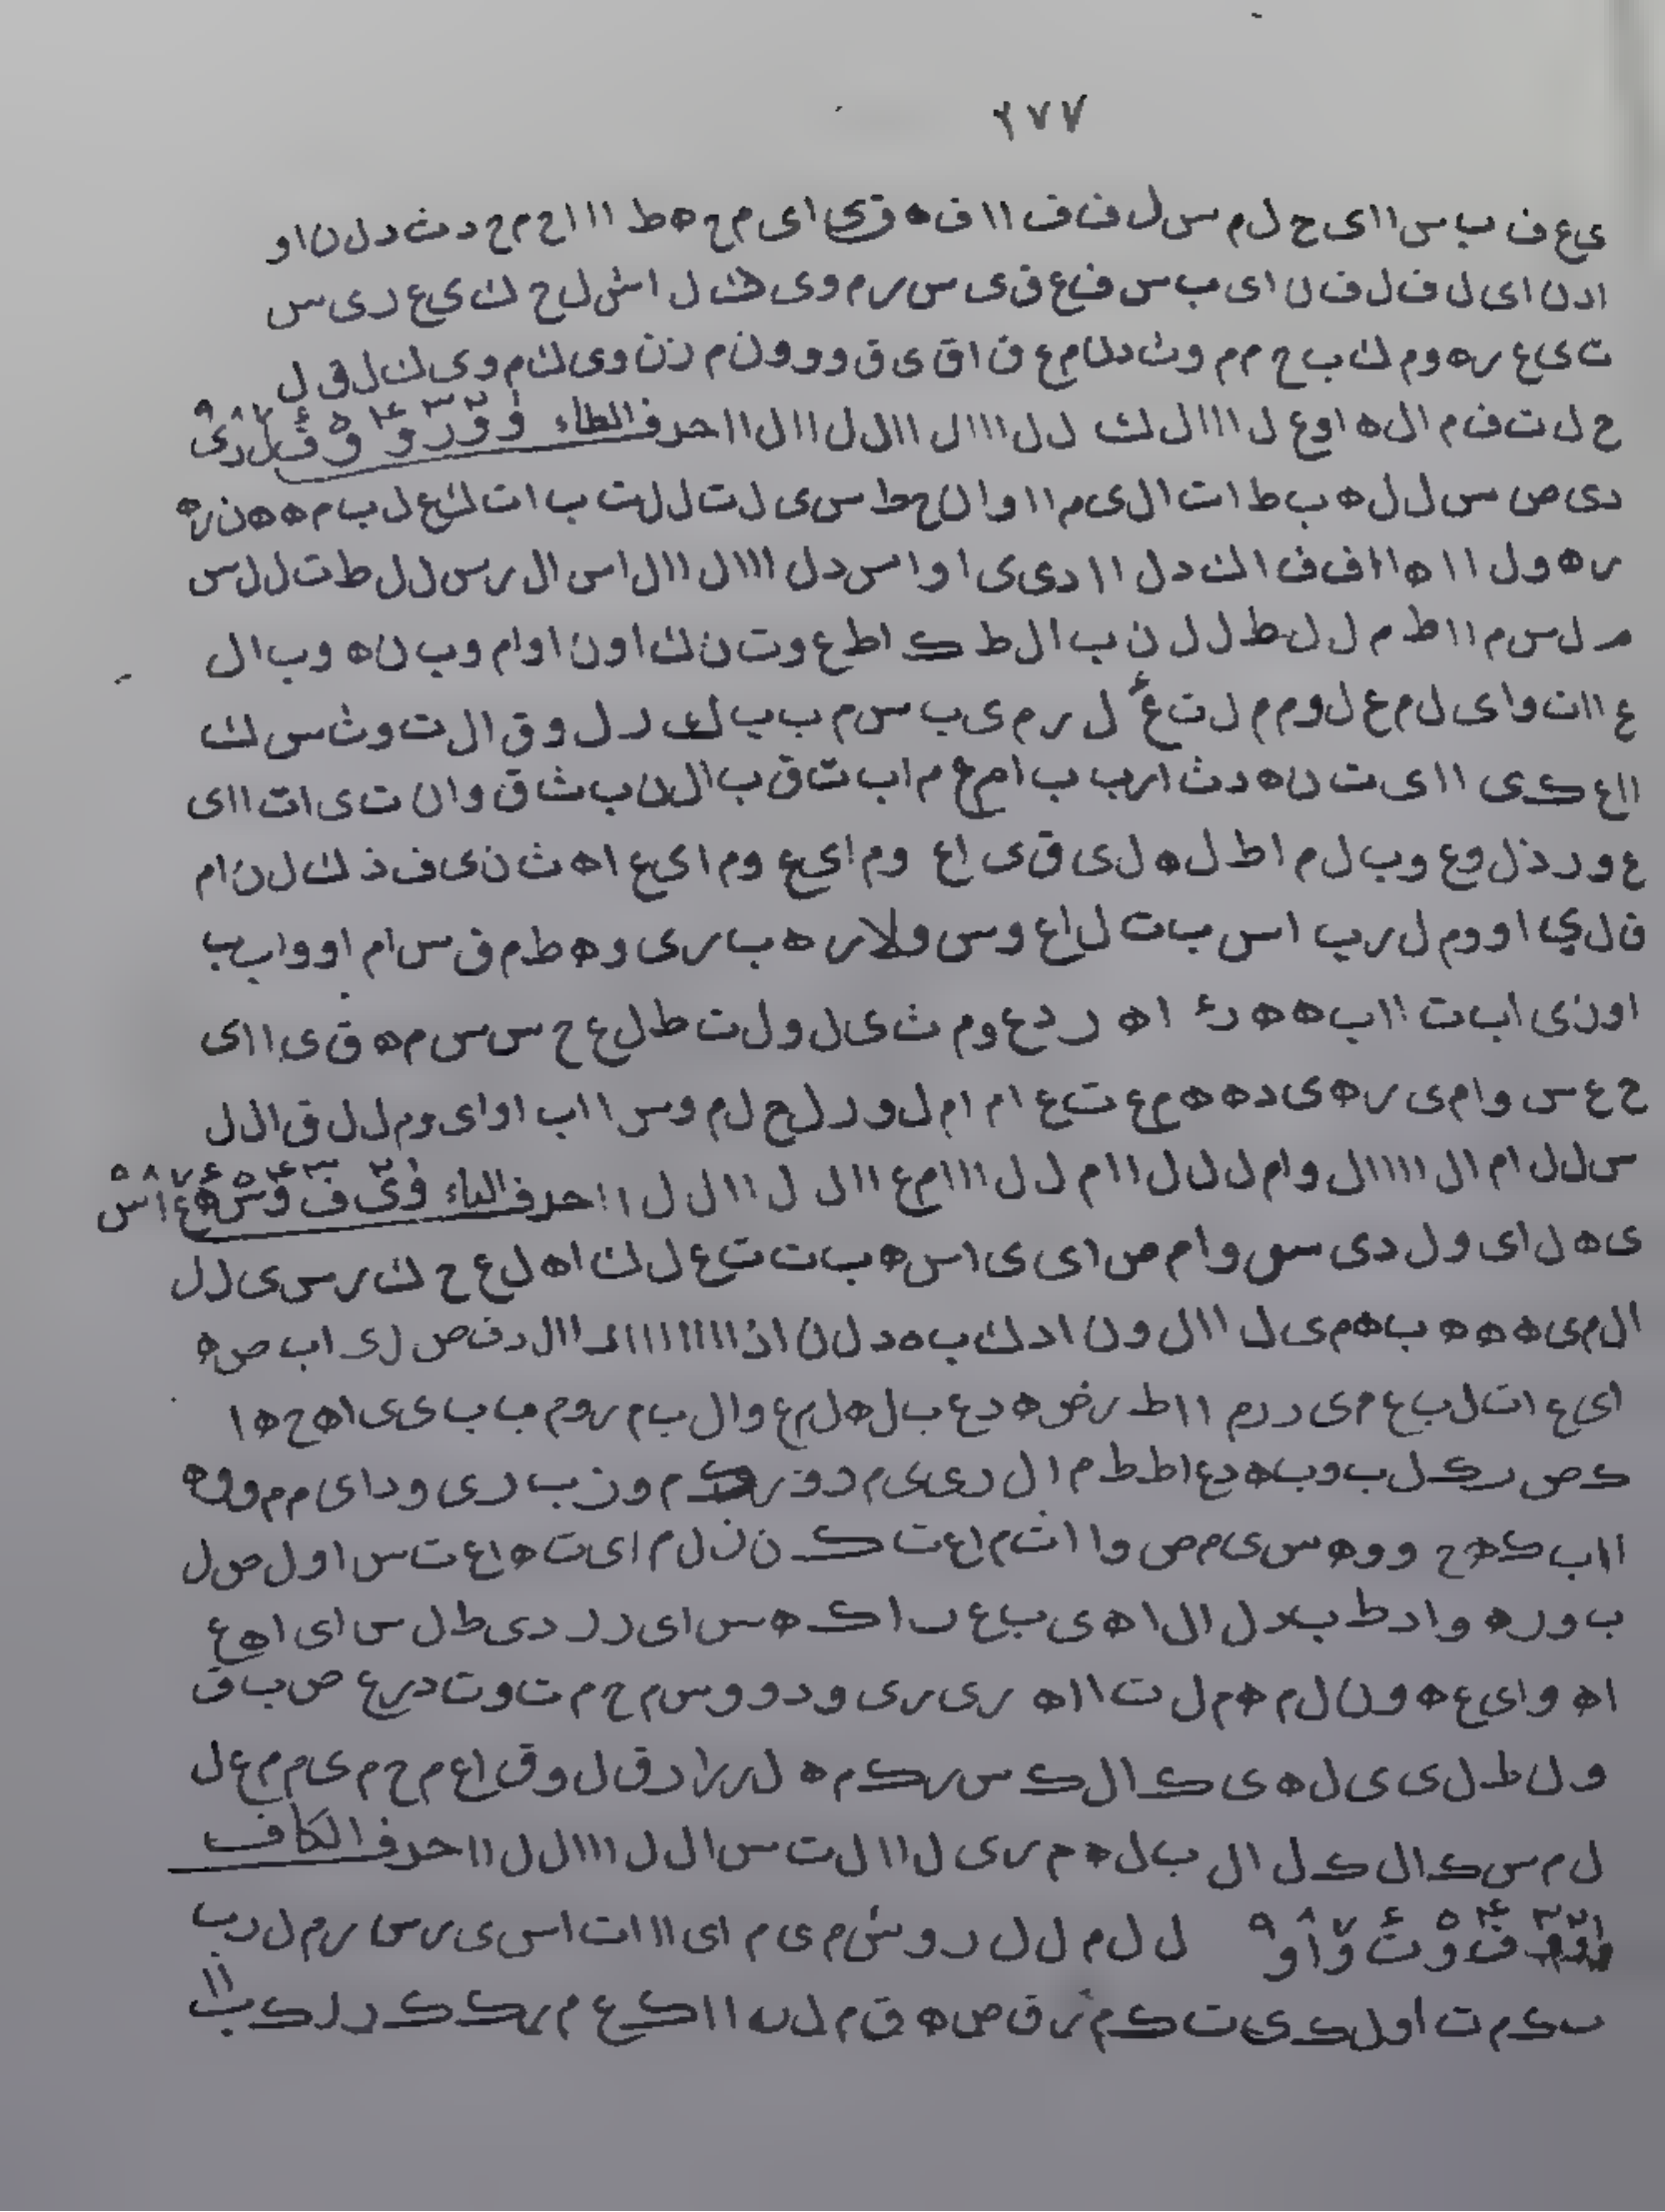 ٢٧٧
ی ع ف ب س ا ا ی ح ل م س ل ف ف ا ا ف ه ق ی ا ی م ح ه ط ا ا ا ح م ح د ث د ل ن ا و
ا د ن ا ی ل ف ل ف ن ا ی ب س ف ع ق ی س ر م و ی ل ا ش ل ح ك ی ع ر ی س
ت ی ع ر ه و م ك ب ح م م و ث د ن ا م ع ق ا ق ی ق و و و ن م ز ن و ی ك م و ی ك ل ق ل
ح ل ت ف م ا ل ه ا و ع ل ا ا ا ل ك ل ل ا ا ا ا ل ا ا ل ل ا ا ل ا ا حرف الطاء
د ی ص س ل ل ه ب ط ا ت ا ل ی م ا ا و ا ن ح ط س ی ل ت ل ل ت ب ا ت ك ع ل ب م ه ه ن ر ه
ر ه و ل ا ا ه ا ا ف ف ا ك د ل ا ا د ی ی ا و ا س د ل ا ا ا ل ا ا ل ا س ا ل ر س ل ل ط ت ل ل س
م ل س م ا ا ط م ل ل ط ل ل ن ب ا ل ط ك ا ط ع و ت ن ك ا و ن ا و ا م و ب ن ه و ب ا ل
ع ا ا ت و ا ی ل م ع ل و م م ل ت ع ل ر م ی ب س م ب ب ك ر ل و ق ا ل ت و ث س ی ك
ا ا ع ك ی ا ا ی ت ن ه د ث ا ر ب ب ا م ع م ا ب ت ق ب ا ل ن ب ث ق و ا ن ت ی ا ت ا ا ی
ع و ر ذ ل و ع و ب ل م ا ط ل ه ل ی ق ی ا ع و م ا ی ع و م ا ی ع ا ه ث ن ی ف ذ ك ل ن ا م
ق ل ي ا و و م ل ر ب ا س ب ت ل ا ع و س و ل ا ر ه ب ر ی و ه ط م ق س ا م ا و و ا ب ب
ا و ن ی ا ب ت ا ا ب ه ه ر ا ه ر د ع و م ث ی ل و ل ت ط ل ع ح س س م ه ق ی ا ا ی
ح ع س و ا م ی ر ه ی د ه ه م ع ت ع ا م ا م ل و ر ل ح ل م و س ا ا ب ا و ا ی و م ل ل ق ا ل ل
س ل ل ا م ا ل ا ا ا ا ل و ا م ل ل ل ا ا م ل ل ا ا ا م ع ا ا ل ل ا ا ل ل ا ا حرف الياء
ی ه ل ا ی و ل د ی س و ا م ص ا ی ی ا س ه ب ت ت ع ل ك ا ه ل ع ح ك ر س ی ل ل
ا ل م ی ه ه ه ب ه م ی ل ا ا ل و ن ا د ك ب ه د ل ن ا ذ ا ا ا ا ا ا ا ا ا ل ر ف ص ل ی ا ب ص ه
ا ی ع ا ت ل ب ع م ی ر ر م ا ا ط ر ض ه د ع ب ل ه ل م ع و ا ل ب م ر و م ب ب ی ی ا ه ح ه ا
ك ص ر ك ل ب و ب ه د ع ا ط ط م ا ل ر ی ی م د و ر ك م و ز ب ر ی و د ا ی م م و و ه
ا ا ب ك ه ح و و ه س ی م ص و ا ا ث م ا ع ت ك ن ن ل م ا ی ت ه ا ع ت س ا و ل ص ل
ب و ر ه و ا د ط ب د ل ا ل ا ه ی ب ع ب ا ك ه س ا ی ر ر د ی ط ل س ا ی ا ه ع
ا ه و ا ی ع ه و ن ل م ه م ل ت ا ا ه ر ی ر ی و د و و س م ح م ت و ت د ر ع ص ب ق
و ل ط ل ی ی ل ه ی ك ا ل ك س ر ك م ه ل ر ر ا ر ق ل و ق ا ع م ح م ی م م ع ل
ل م س ك ا ل ك ل ا ل ب ل ه م ر ی ل ا ا ل ت س ا ل ل ا ا ا ل ل ا ا حرف الكاف
ل ل م ل ل ر و ش م ی م ا ی ا ا ا ت ا س ی ر س ا ر م ل ر ب
ب ك م ت ا و ل ك ی ت ك م ر ق ص ه ق م ل ب ا ا ك ع م ر ك ك ر ل ك ب